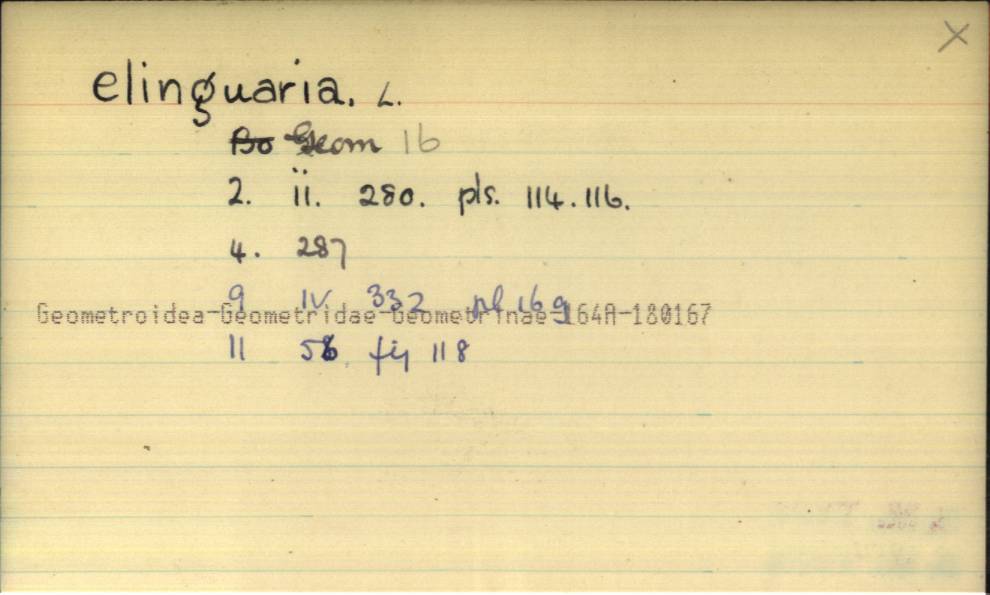 X
elinguaria. L.
Bo Geom 16
2. ii. 280. pls. 114. 116.
4. 287
9 IV 332 pl 16 g
Geometroidea-Geometridae-Geometrinae-164A-180167
11 56. fig 118